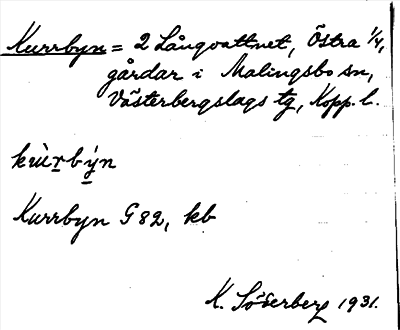 Kurrbyn = 2 Långvattnet, Östra 1/4,
gårdar i Malingsbo sn,
Västerbergslags tg, Kopp. l.
kùr̲bý̲n
Kurrbyn G 82, kb
K. Söderberg 1931.